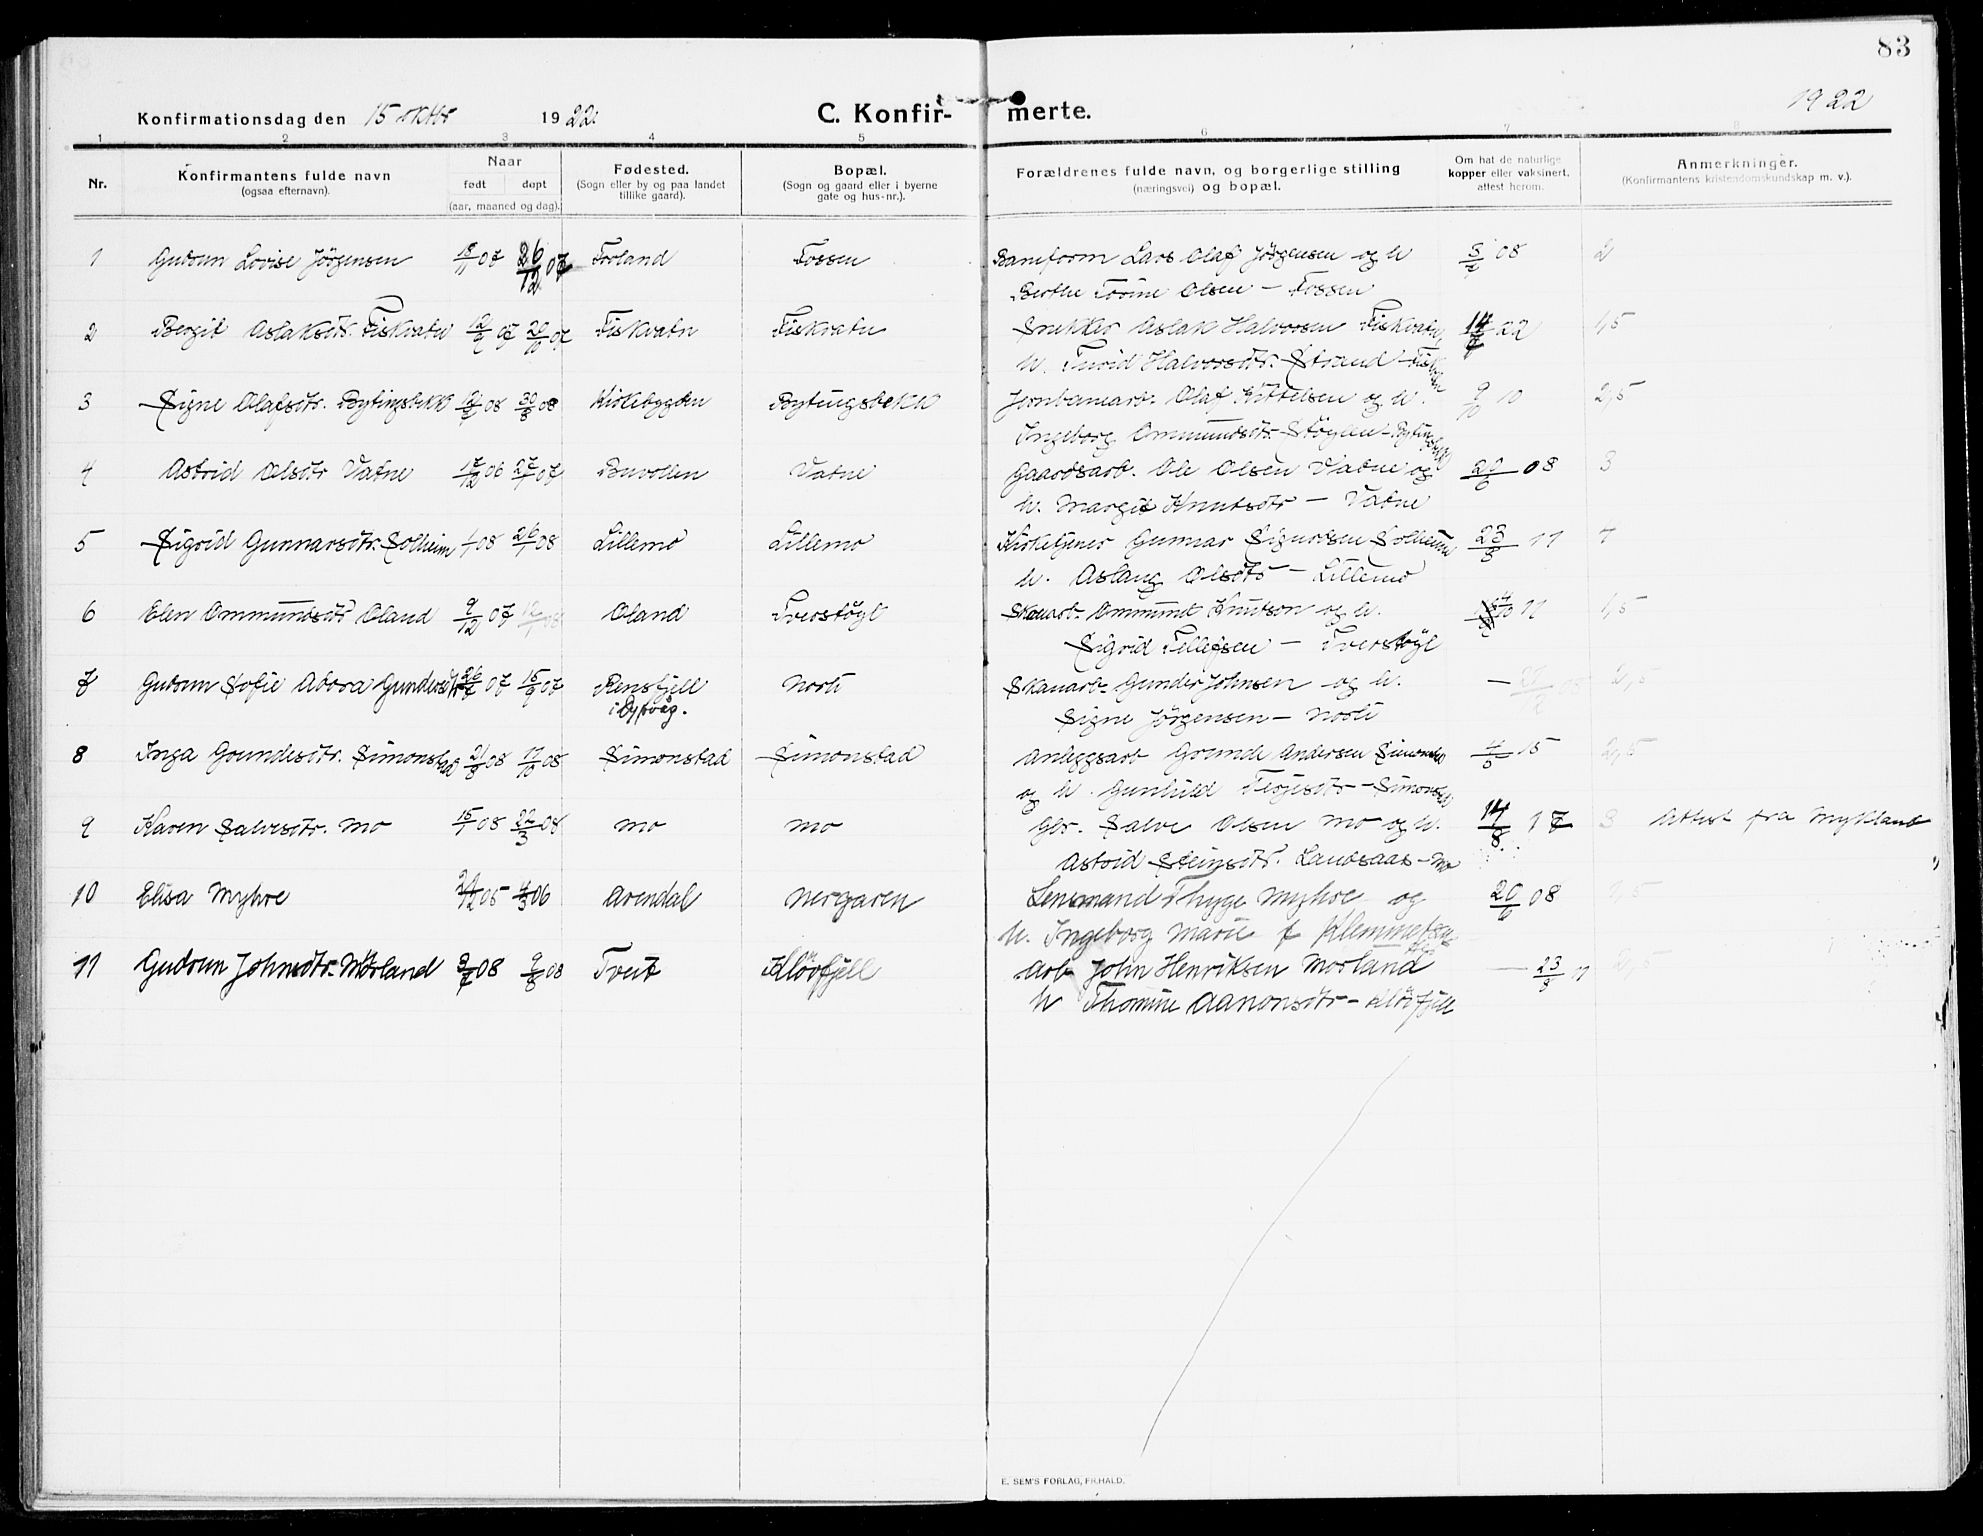 83
Konfirmationsdag den 15 oktbr 1922. C. Konfir- merte. 1922
1 2 3 4 5 6 7 8
Nr. Konfirmantens fulde navn (ogsaa efternavn). Naar født døpt (aar, maaned og dag). Fødested. (Sogn eller by og paa landet tillike gaard). Bopæl. (Sogn og gaard eller i byerne gate og hus-nr.). Forældrenes fulde navn, og borgerlige stilling (næringsvei) og bopæl. Om hat de naturlige kopper eller vaksinert, attest herom. Anmerkninger. (Konfirmantens kristendomskundskap m. v.).
1 Gudrun Lovise Jörgensen 18/11 07 26/12 07 Froland Fossen Baneform Lars Olaf Jörgensen og h 5/7 08 2
Berthe Torine Olsen – Fossen
2 Bergit Aslaksdtr. Fiskvatn 07 20/10 07 Fiskvatn Fiskvatn Snekker Aslak Halvorsen Fiskvatn 22 1,5
h. Turid Halvorsdtr. Strand –
3 Signe Olafsdtr. Bytingsbekk 08 30/8 08 Kirkebygden Bytingsbekk Jernbanearb. Olaf Kittelsen og h. 9/10 10 2,5
Ingeborg Ommundsdtr. Stöylen – Bytingsbekk
4 Astrid Olsdtr Vatne 17/12 06 27/1 07 Buvollen Vatne Gaardsarb. Ole Olsen Vatne og 20/6 08 3
h. Margit Knutsdtr – Vatne
5 Sigrid Gunnarsdtr. Solheim 1/1 08 26/1 08 Lillemo Lillemo Kirketjener Gunnar Sigurdsen Solheim 23/5 11
h. Aslaug Olsdtr – Lillemo
6 Elen Ommundsdtr Oland 9/12 07 12/1 08 Oland Tverstøyl Skauarb. Ommund Knutson og h. 11 1,5
Sigrid Tellefsen – Tverstöyl
7 Gudrun Sofie Advora Gundersdtr 26/7 07 15/9 07 Rensfjell i Dypvåg. Norli Skauarb. Gunder Johnsen og h. – 2,5
Signe Jörgensen – Norli
8 Inga Grundesdtr. Simonstad 21/8 08 17/10 08 Simonstad Simonstad Anleggsarb Grunde Andersen Simonstad 4/5 15 2,5
og h. Gunhild Terjesdtr – Simonstad
9 Karen Salvesdtr. Mo 15/1 08 22/3 08 Mo Mo Gbr. Salve Olsen Mo og h. 14/8 17 3 Attest fra Mykland
Astrid Steinsdtr. Landsaas – Mo
10 Elisa Myhre 05 4/3 06 Arendal Nergaren Lensmand Thyge Myhre og 20/6 08 2,5
h. Ingeborg Marie f Klemmetsen
11 Gudrun Johnsdtr. Mörland 3/7 08 9/8 08 Tveit Klövfjell Arb John Henriksen Morland – 23/5 11 2,5
h Thomine Aanonsdtr – Klövfjell
E. SEM'S FORLAG, FR.HALD.